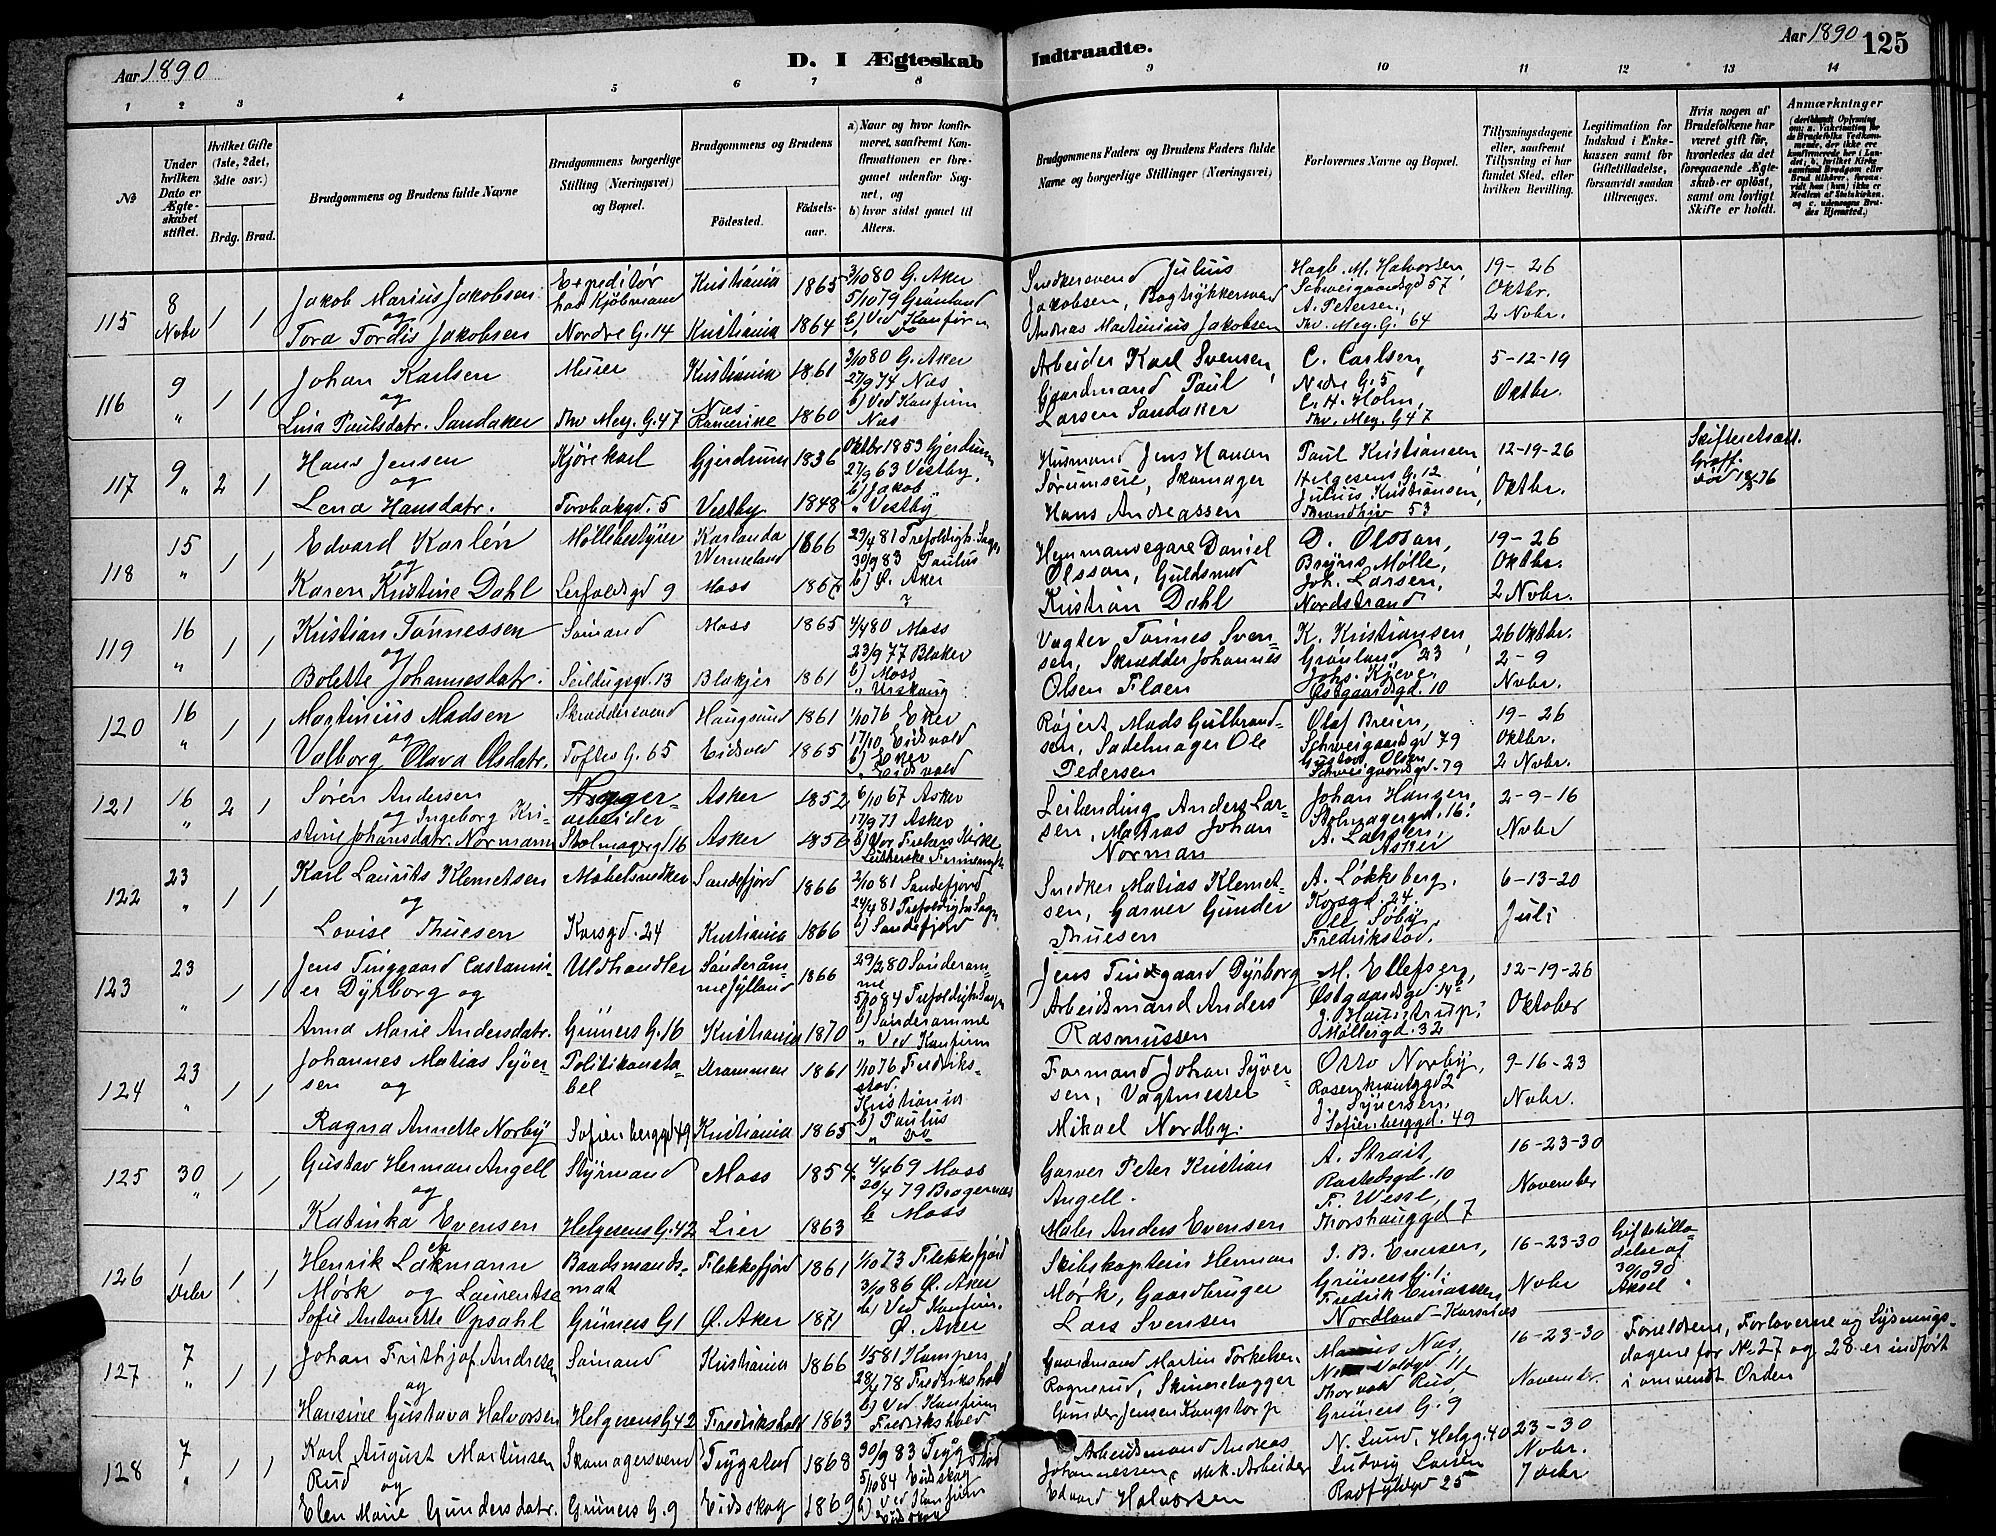 Aar 1890
D. I Ægteskab Indtraadte.
Aar 1890 125
1 2 3 4 5 6 7 8 9 10 11 12 13 14
№
Under hvilken Dato er Ægteskabet stiftet.
Hvilket Gifte (1ste, 2det, 3die osv.)
Brdg. Brud.
Brudgommens og Brudens fulde Navne
Brudgommens borgerlige Stilling (Næringsvei) og Bopæl.
Brudgommens og Brudens
Födested.
Födselsaar.
a) Naar og hvor konfirmeret, saafremt Konfirmationen er foregaaet udenfor Sognet, og
b) hvor sidst gaaet til Alters.
Brudgommens Faders og Brudens Faders fulde Navne og borgerlige Stillinger (Næringsvei)
Forlovernes Navne og Bopæl.
Tillysningsdagene eller, saafremt Tillysning ei har fundet Sted, efter hvilken Bevilling.
Legitimation for Indskud i Enkekassen samt for Giftetilladelse, forsaavidt saadan tiltrænges.
Hvis nogen af Brudefolkene har været gift før, hvorledes da det foregaaende Ægteskab er oplöst, samt om lovligt Skifte er holdt.
Anmærkninger
115 8 Novbr 1 1
Jakob Marius Jakobsen
og
Tora Tordis Jakobsen
Expeditör hos Kjöbmand
Nordre G. 14
Kristiania 1865
Kristiania 1864
3/10 80 G. Aker
5/10 79 Grönland
b) Ved Konfirm
Snedkersvend Julius
Jakobsen, Bogtrykkersvend
Andreas Martinius Jakobsen
Hagb. M. Halvorsen,
Schweigaardsgd 57
A. Petersen,
Thv. Mey. G. 64
19-26
Oktbr.
2 Novbr.
116 9 " 1 1
Johan Karlsen
og
Lina Paulsdatr. Sandaker
Murer
Thv Mey. G. 47
Kristiania 1861
Næs Romerike 1860
3/10 80 G. Aker
27/9 74 Næs
b) Ved Konfirm
Næs
Arbeider Karl Svensen,
Gaardmand Paul
Larsen Sandaker
C. Carlsen,
Nedre G. 5
C. H. Holm,
Thv. Mey. G 47
5-12-19
Oktbr.
117 9 " 2 1
Hans Jensen
og
Lena Hansdatr.
Kjörekarl
Torvbakgd. 5
Gjerdrum 1836
Vestby 1848
Oktbr 1853 Gjerdrum
27/9 63 Vestby.
b) Jakob
" Vestby
Husmand Jens Hanen
Sørumseie, Skomager
Hans Andreassen
Paul Kristiansen
Helgesens G. 12
Julius Kristiansen,
Trondhjv 53
12-19-26
Oktbr.
Skifteretsatt.
118 15 " 1 1
Edvard Karlén
og
Karen Kristine Dahl
Möllebestyrer
Lerfaldsgd 9
Karlanda Wermeland 1866
Moss 1867
29/4 81 Trefoldigh. Sogn
30/9 83 Paulus
b) Ø. Aker
Hemmansegare Daniel
Olsson, Guldsmed
Kristian Dahl
D. Olsson,
Bryns Mølle,
Joh. Larsen,
Nordstrand
19-26
Oktbr.
2 Novbr.
119 16 " 1 1
Kristian Tönnessen
og
Bolette Johannesdatr.
Sömand
Seildugsgd. 13
Moss 1865
Blakjer 1861
1/4 80 Moss
23/9 77 Blaker
b) Moss
" Urskoug
Vagter Tönnes Svensen, Skrædder Johannes
Olsen Flaen
K. Kristiansen,
Grønland 23
Johs. Kjever
Østgaardsgd. 10
26 Oktbr.
2-9
Novbr.
120 16 " 1 1
Martinius Madsen
og
Valborg Olava Olsdatr.
Skræddersvend
Toftes G. 65
Haugsund 1861
Eidsvold 1865
1/10 76 Eker
17/10 Eidsvold
b) Eker
" Eidsvold
Røjert Mads Gulbrandsen, Sadelmager Ole
Pedersen
Olaf Breien,
Schweigaardsgd 79
Gustav Olsen
Schweigaardsgd. 79
19-26
Oktbr.
2 Novbr.
121 16 " 2 1
Sören Andersen
og Ingeborg Kristine Johansdatr. Normann
arbeider
Stolmagergd 16
Asker 1852
Asker 1850
6/10 67 Asker
17/9 71 Asker
b) Vor Frelsers Kirke
Leilænding Anders Larsen, Matros Johan
Norman
Johan Hansen
Stolmagergd. 16.
A. Larsen,
Asker
2-9-16
Novbr
122 23 " 1 1
Karl Laurits Klemetsen
og
Lovise Thuesen
Möbelsnedker
Korsgd. 24
Sandefjord 1866
Kristiania 1866
2/10 81 Sandefjord
24/4 81 Trefoldigh Sogn
b) Sandefjord
Snedker Matias Klemetsen, Garver Gunder
Thuesen
A. Løkkeberg.
Korsgd. 24.
Ole Søby,
Fredrikstad.
6-13-20
Juli
123 23 " 1 1
Jens Tinggaard Castanier Dyrborg og
Anna Marie Andersdatr.
Uldhandler
Grüners G. 16
Sönderömme Jylland 1866
Kristiania 1870
29/2 80 Sönderomme
5/10 84 Trefoldigh Sogn
b) Sönderomme
" Ved Konfirm
Jens Tinggaard Dyrborg
Arbeidsmand Anders
Rasmussen
M. Ellefsen,
Østgaardsgd. 14b
Møllergd. 32
12-19-26
Oktober
124 23 " 1 1
Johannes Matias Syversen og
Ragna Annette Norby
Politikonstabel
Sofienberggd 49
Drammen 1861
Kristiania 1865
1/10 76 Fredriksstad
Kristiania
b) Paulus
" Do
Formand Johan Syversen, Vagtmester
Mikael Nordby.
Otto Norby,
Rosenkrantzgd 2
J. Syversen.
Sofienberggd. 49
9-16-23
Novbr.
125 30 " 1 1
Gustav Herman Angell
og
Katinka Evensen
Styrmand
Helgesens G. 42
Moss 1854
Lier 1863
4/4 69 Moss
20/4 79 Bragernæs
b Moss
Garver Peter Kristian
Angell.
Maler Anders Evensen
A. Strait,
Rostedsgd. 10
F. Wessel,
Thorshauggd 7
16-23-30
November
126 1 Decbr 1 1
Henrik Lackmann
Mørk og Laurentse
Sofie Antonette Opsahl
Baadsmandsmat
Grüners G 1
Flekkefjord 1861
Ø. Aker 1871
1/10 73 Flekkefjord
3/10 86 Ø. Aker
b) Ved Konfirm.
Ø. Aker
Skibskaptein Herman
Mørk, Gaardbruger
Lars Svensen
J. B. Evensen,
Grüners G. 1.
Fredrik Einarsen
16-23-30
Novbr
Giftetilladelse af
30/10 90
127 7 " 1 1
Johan Frithjof Andresen
og
Hansine Gustava Halvorsen
Sömand
Helgesens G 42
Kristiania 1866
Fredrikshald 1863
1/5 81 Kampen
28/4 78 Fredrikshald
b) Ved Konfirm
Fredrikshald
Gaardmand Martin Torkilsen
Rognerud, Skinnelægger
Gunder Jensen Kongstorp
Marius Næs,
Voldgd. 11,
Thorvald Rud,
Grüners G. 9
16-23-30
November.
Forældrene, Forloverne og Lysningsdagene for № 27 og 28 er indført
i omvendt Orden
128 7 " 1 1
Karl August Martinsen
Rud og
Elen Marie Gundersdatr.
Skomagersvend
Grüners G. 9
Trygstad 1868
Eidskog 1869
30/9 83 Trygstad
5/10 84 Eidskog
b) Ved Konfirm
Eidskog
Arbeidsmand Andreas
Johannessen, Mek. Arbeider
Edvard Halvorsen
N. Lund, Helgg. 40
Ludvig Larsen
Rødfyldgd 25
23-30
Novbr.
7 Decbr